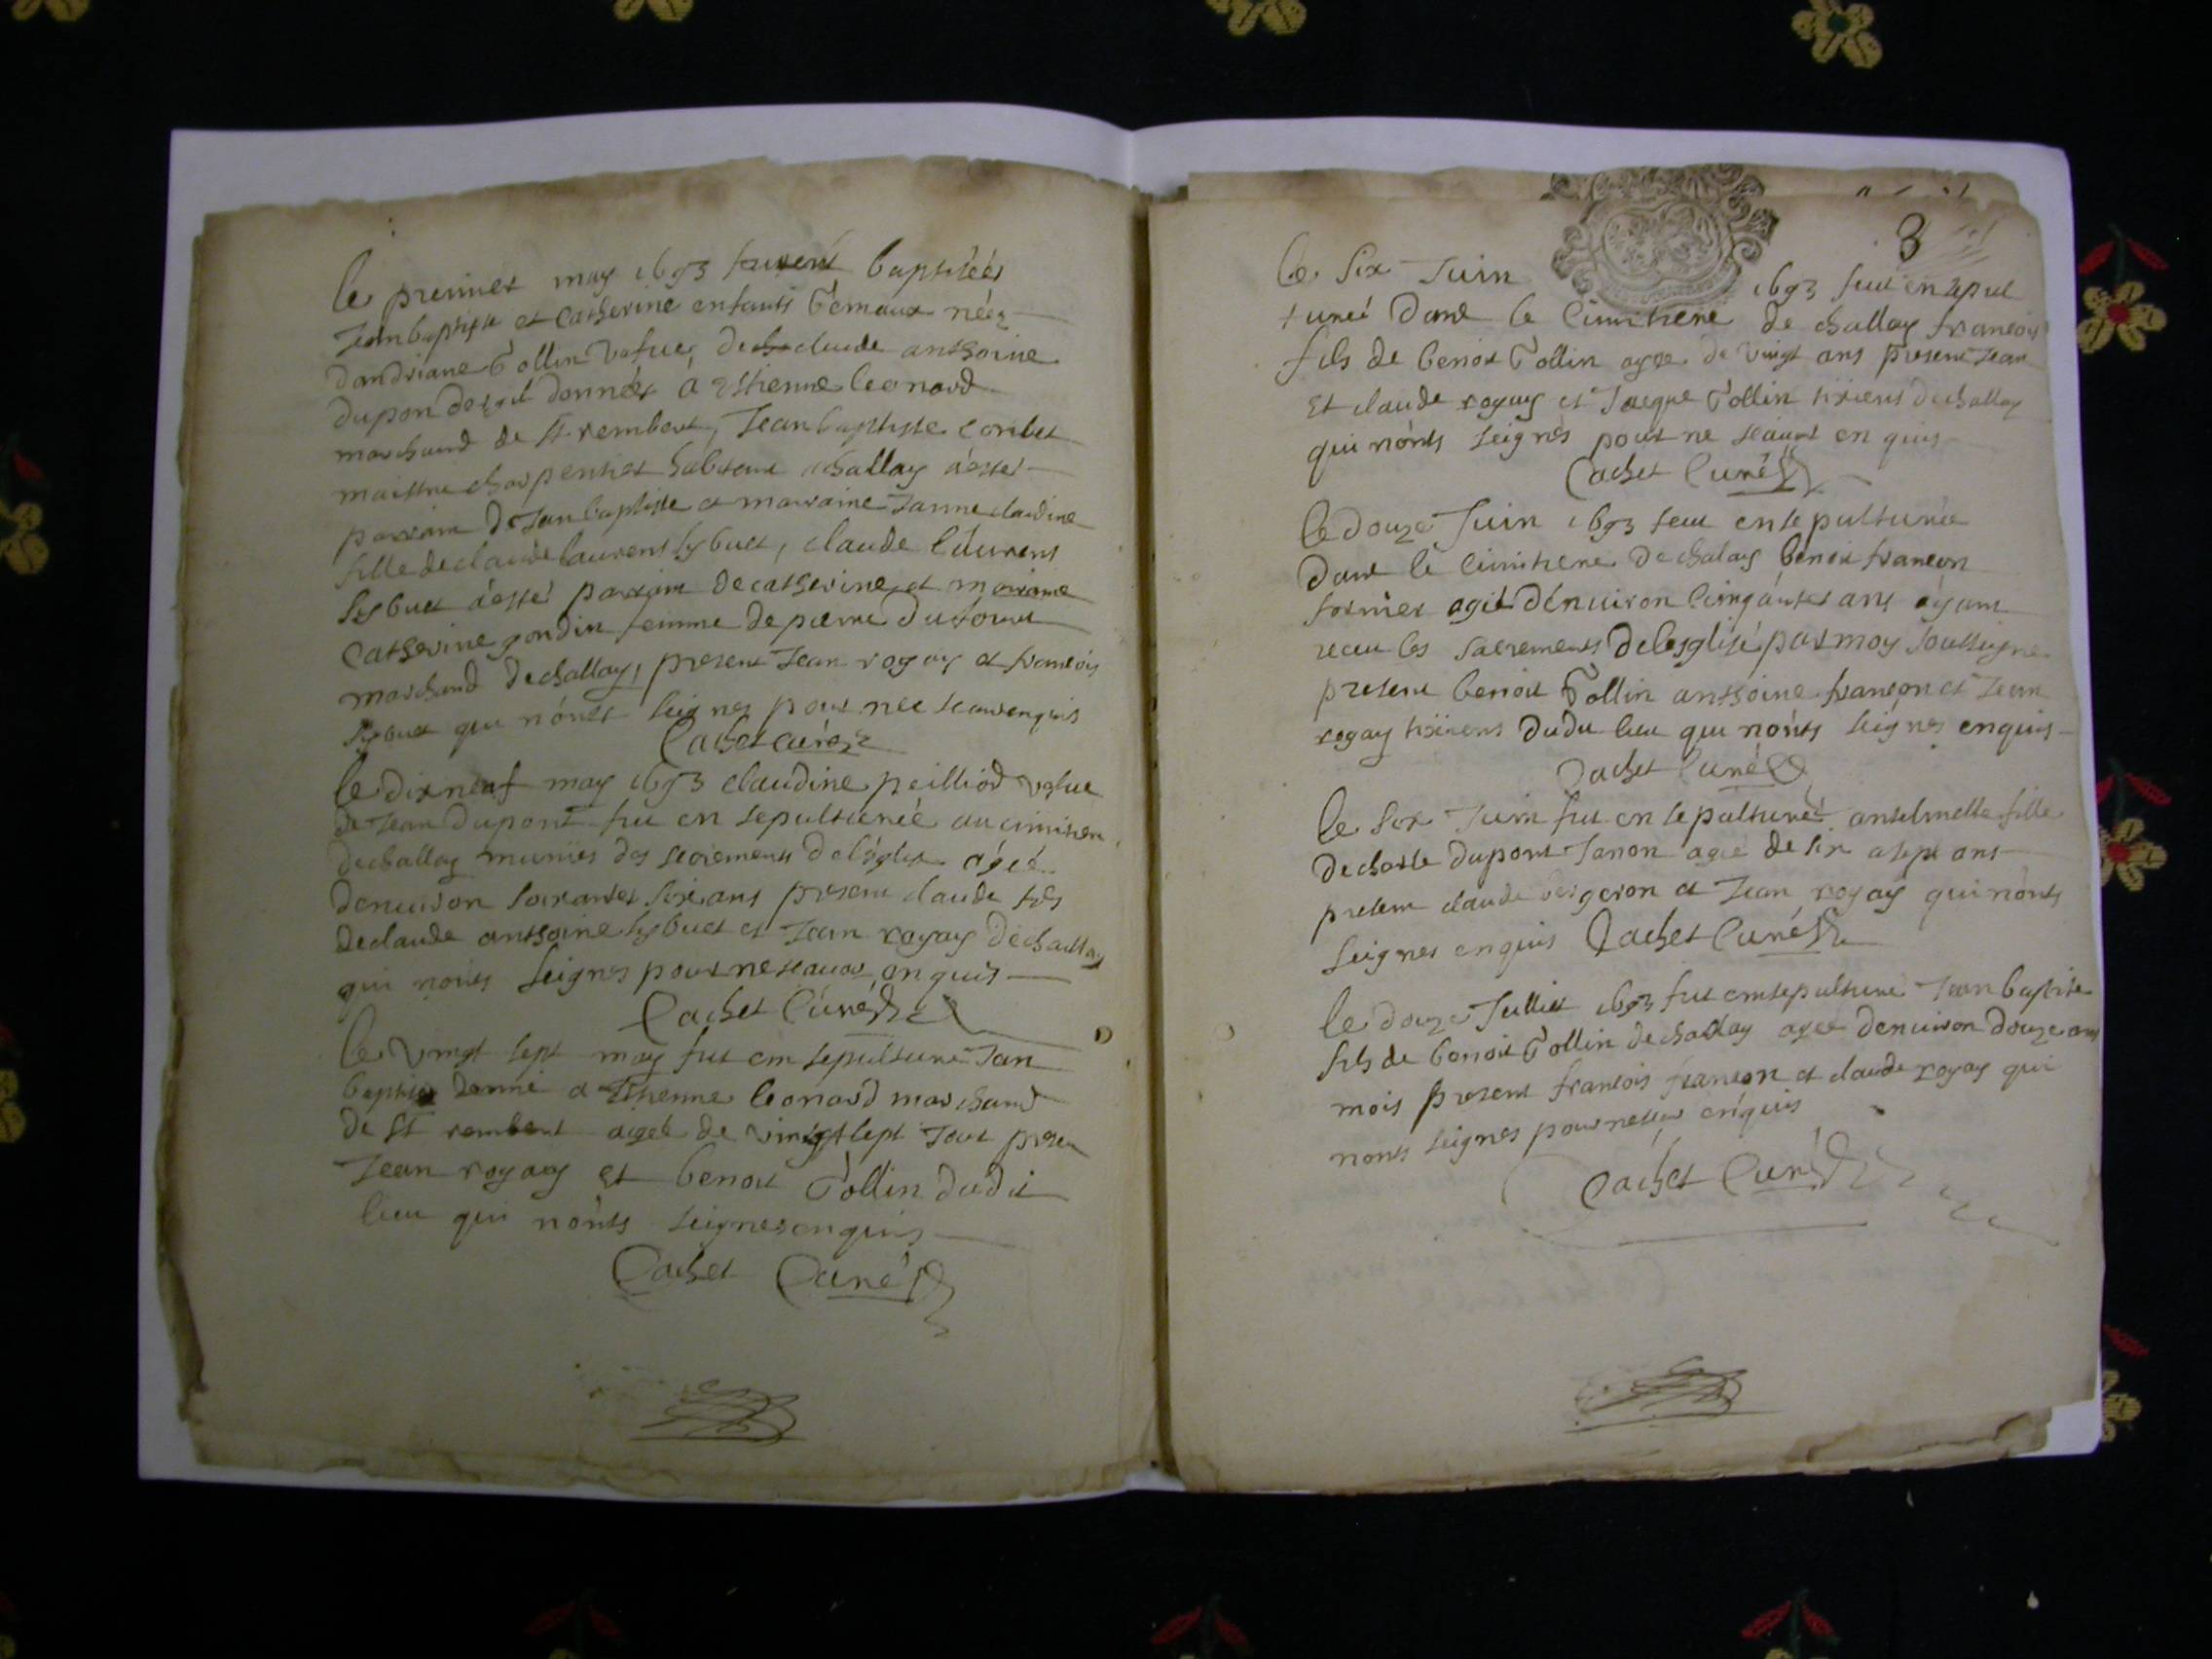 le premier may 1693 furent baptisées
Jean baptiste et Catherine enfants Gemaux néez
dandriane Gollin vefue de claude anthoine
dupon donnés á Estienne leonard
marchand de St rembert, Jean baptiste Corbet
maistre charpentier habitant challay a esté
parrain de Jan baptiste et marraine Janne claudine
fille de claude laurent sybuet, claude laurent
sybuet a esté parrain de catherine et maraine
Catherine gondin femme de pierre dufour
marchand de challay, present Jean rogay et francois
sybuet qui nónts seignes pour nee scavoir enquis
Cachet curé
le dix neuf may 1693 claudine peilliod vefue
de Jean dupont fut en sepulturée au cimitiere
de challay munies des sacrements de léglise agée
denuiron soixantes six ans present claude fils
de claude anthoine sybuet et Jean rogay de challay
qui nonts seignes pour ne scauoir enquis
Cachet Curé
le vingt sept may fut em sepulturé Jan
baptiste donné a Estienne leonard marchand
de St rembert ageé de vingt sept Jour present
Jean rogay et benoit Gollin dudit
lieu qui nonts seignes enquis
Cachet Curé
3
le six Juin 1693 fut en sepul
tureé dans le Cimitiere de challay francois
fils de benoit Gollin agee de vingt ans present Jean
et claude rogay et Jacque Gollin tixiers de challay
qui nónts seignés pour ne scauoir enquis
Cachet Curé
le douze Juin 1693 feut en sepulturée
dans le cimitiere de chalay benoit francon
agé dénuiron cinquantes ans ayant
receu les sacrements de lesglise par moy soussigne
present benoit Gollin anthoine françon et Jean
rogay tixiers dudu lieu qui nónts seignes enquis
Cachet Curé
le six Juin fut en sepulturée antelmette fille
de charle dupont Janon ageé de six a sept ans
present claude bergeron et Jean rogay qui nónts
seignes enquis Cachet Curé
le douze Julliet 1693 fut emsepulturé Jean baptiste
fils de benoit Gollin de challay ageé denuiron douze ans
mois present francois françon et claude rogay qui
nonts seignes pour ne scauoir enquis
Cachet Curé